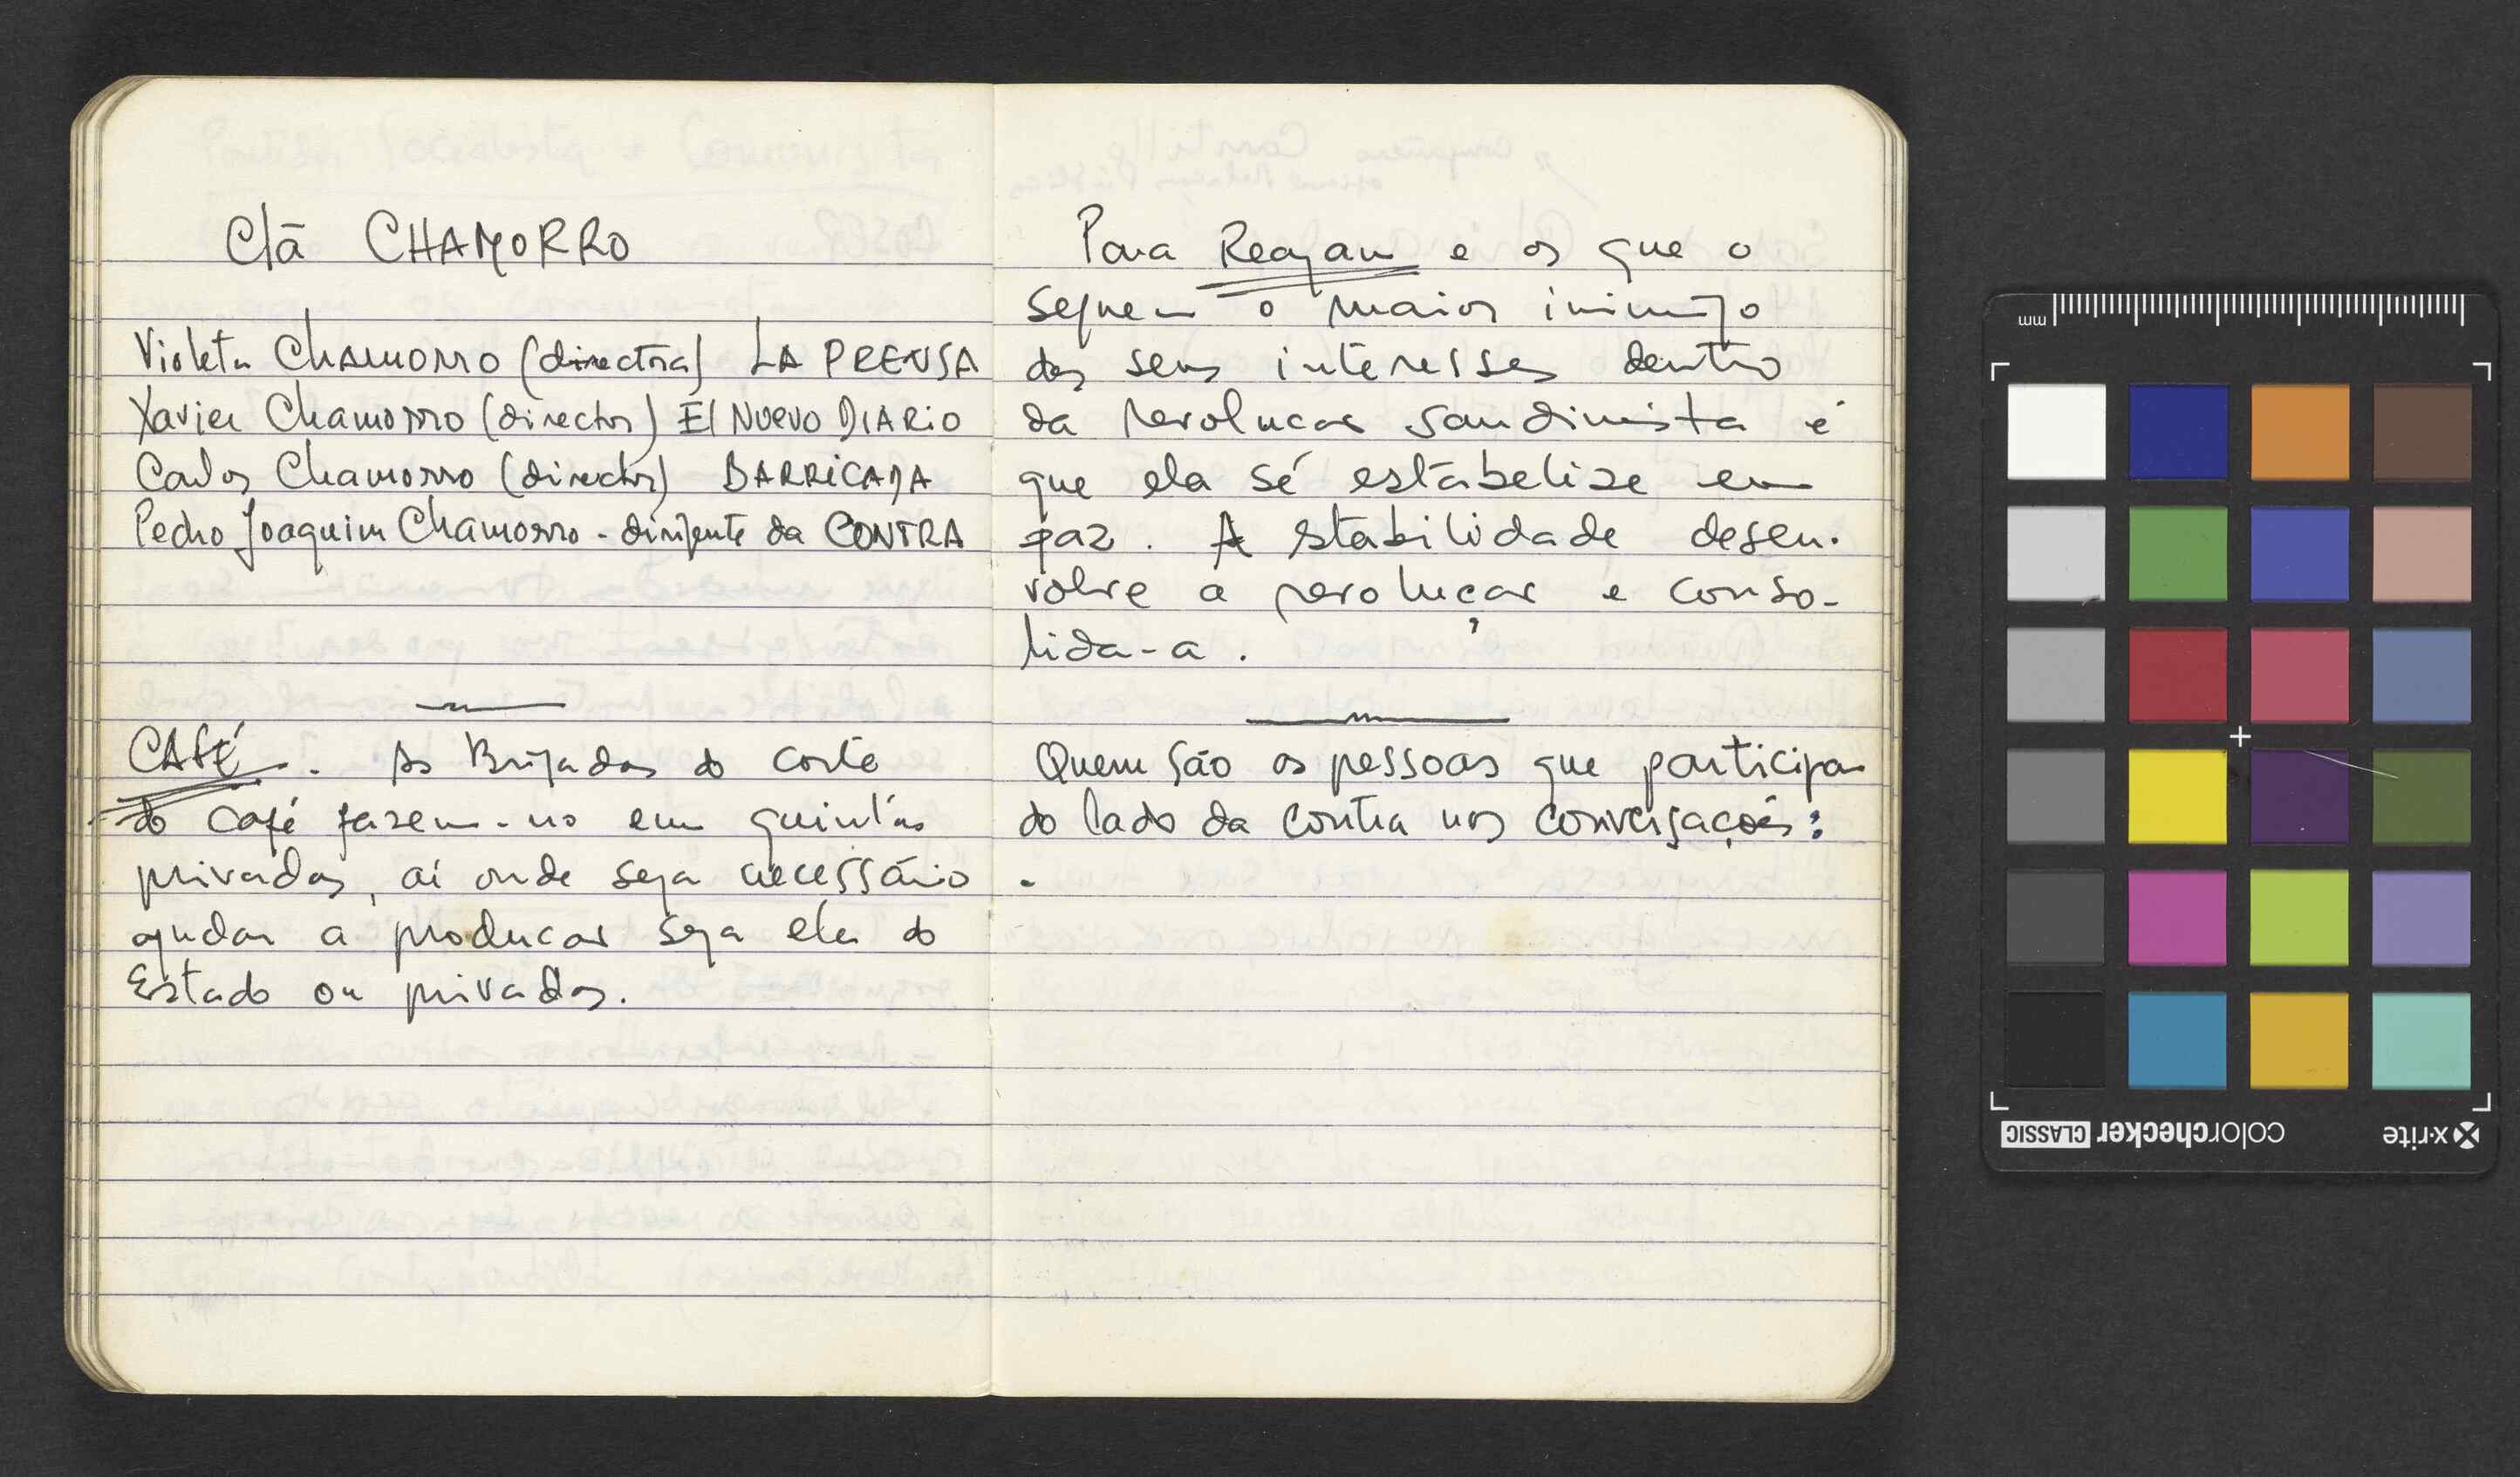 Clã CHAMORRO
Violeta Chamorro (directora) LA PRENSA
Xavier Chamorro (director) El NUEVO DIARIO
Carlos Chamorro (director) BARRICADA
Pedro Joaquim Chamorro - dirigente da CONTRA
CAFÉ. As Brigadas do corte
do café fazem-no em quintas
privadas, aí onde seja necessário
ajudar a producar seja ela do
Estado ou privados.
Para Reagan e os que o
seguem o maior inimigo
dos seus interesses dentro
da revolucar sandinista é
que ela sé estabelize em
paz. A stabilidade desen-
volve a revoluçar e conso-
lida-a.
Quem são as pessoas que participam
do lado da contra nas conversações:
.
mm
x-rite
colorchecker CLASSIC